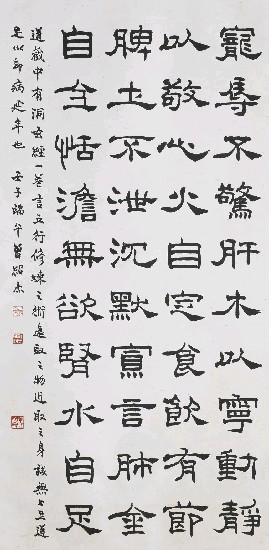 寵辱不驚肝木以寧動靜
以敬心火自定食飲有節
脾土不泄沉默寡言肺金
自全恬澹無欲腎水自足
道藏中有洞玄經一卷言五行修煉之術遠取之物近取之身誠無上至道
足以卻病延年也 壬子端午 曾紹杰